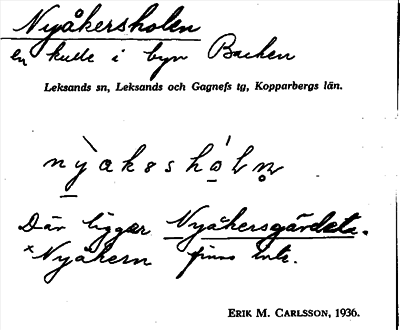 Nyåkersholen
en kulle i byn Backen
Leksands sn, Leksands och Gagnefs tg, Kopparbergs län.
nỳakəshóln̥
Där ligger Nyåkersgärdet.
*Nyåkern finns inte.
ERIK M. CARLSSON, 1936.